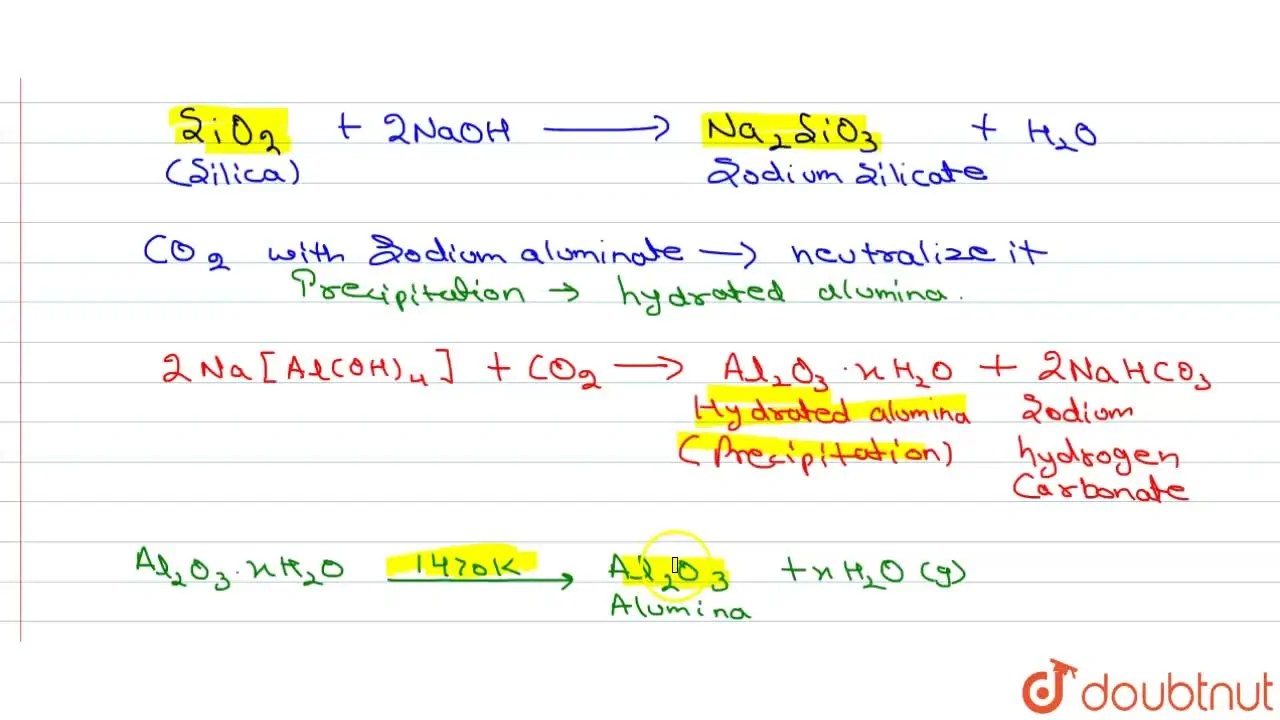 SiO2 + 2NaOH ⟶ Na2SiO3 + H2O
(Silica) Sodium Silicate
CO2 with Sodium aluminate → neutralize it
Precipitation → hydrated alumina.
2Na[Al(OH)4] + CO2 ⟶ Al2O3·xH2O + 2NaHCO3
Hydrated alumina Sodium
(Precipitation) hydrogen
Carbonate
Al2O3·xH2O 1470K ⟶ Al2O3 + xH2O(g)
Alumina
doubtnut